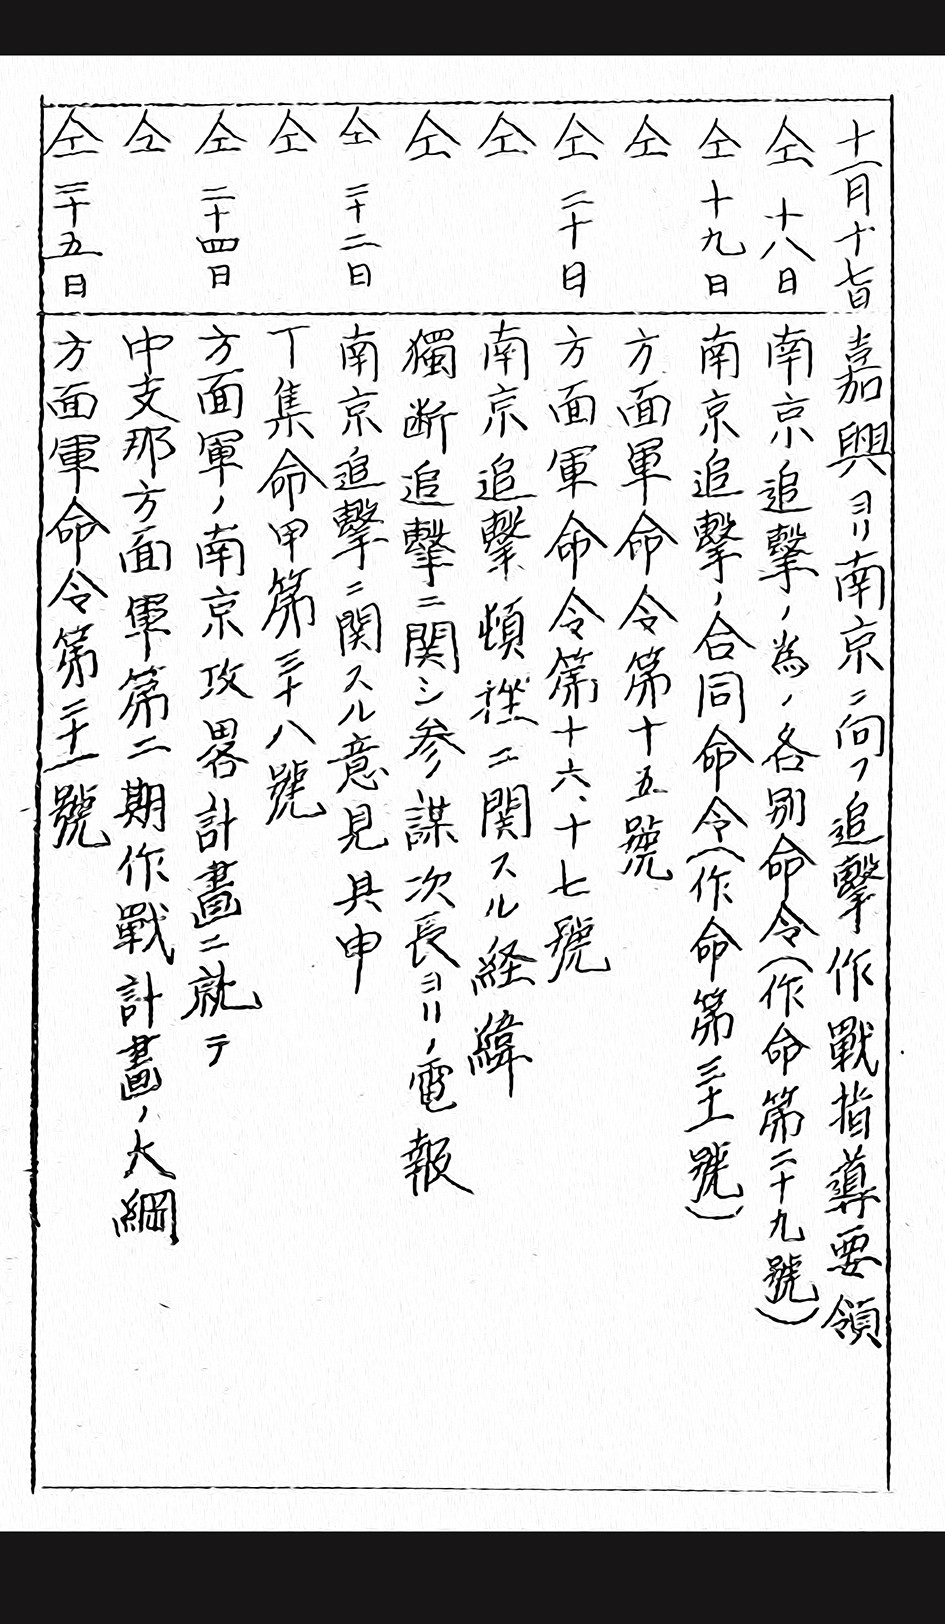 十一月十七日 嘉興ヨリ南京ニ向フ追撃作戰指導要領
仝 十八日 南京追撃ノ為ノ各別命令(作命第二十九號)
仝 十九日 南京追撃ノ合同命令(作命第三十一號)
仝 方面軍命令第十五號
仝 二十日 方面軍命令第十六、十七號
仝 南京追撃頓挫ニ関スル経緯
仝 獨断追撃ニ関シ参謀次長ヨリノ電報
仝 二十二日 南京追撃ニ関スル意見具申
仝 丁集命甲第三十八號
仝 二十四日 方面軍ノ南京攻畧計畫ニ就テ
仝 中支那方面軍第二期作戰計畫ノ大綱
仝 二十五日 方面軍命令第二十一號